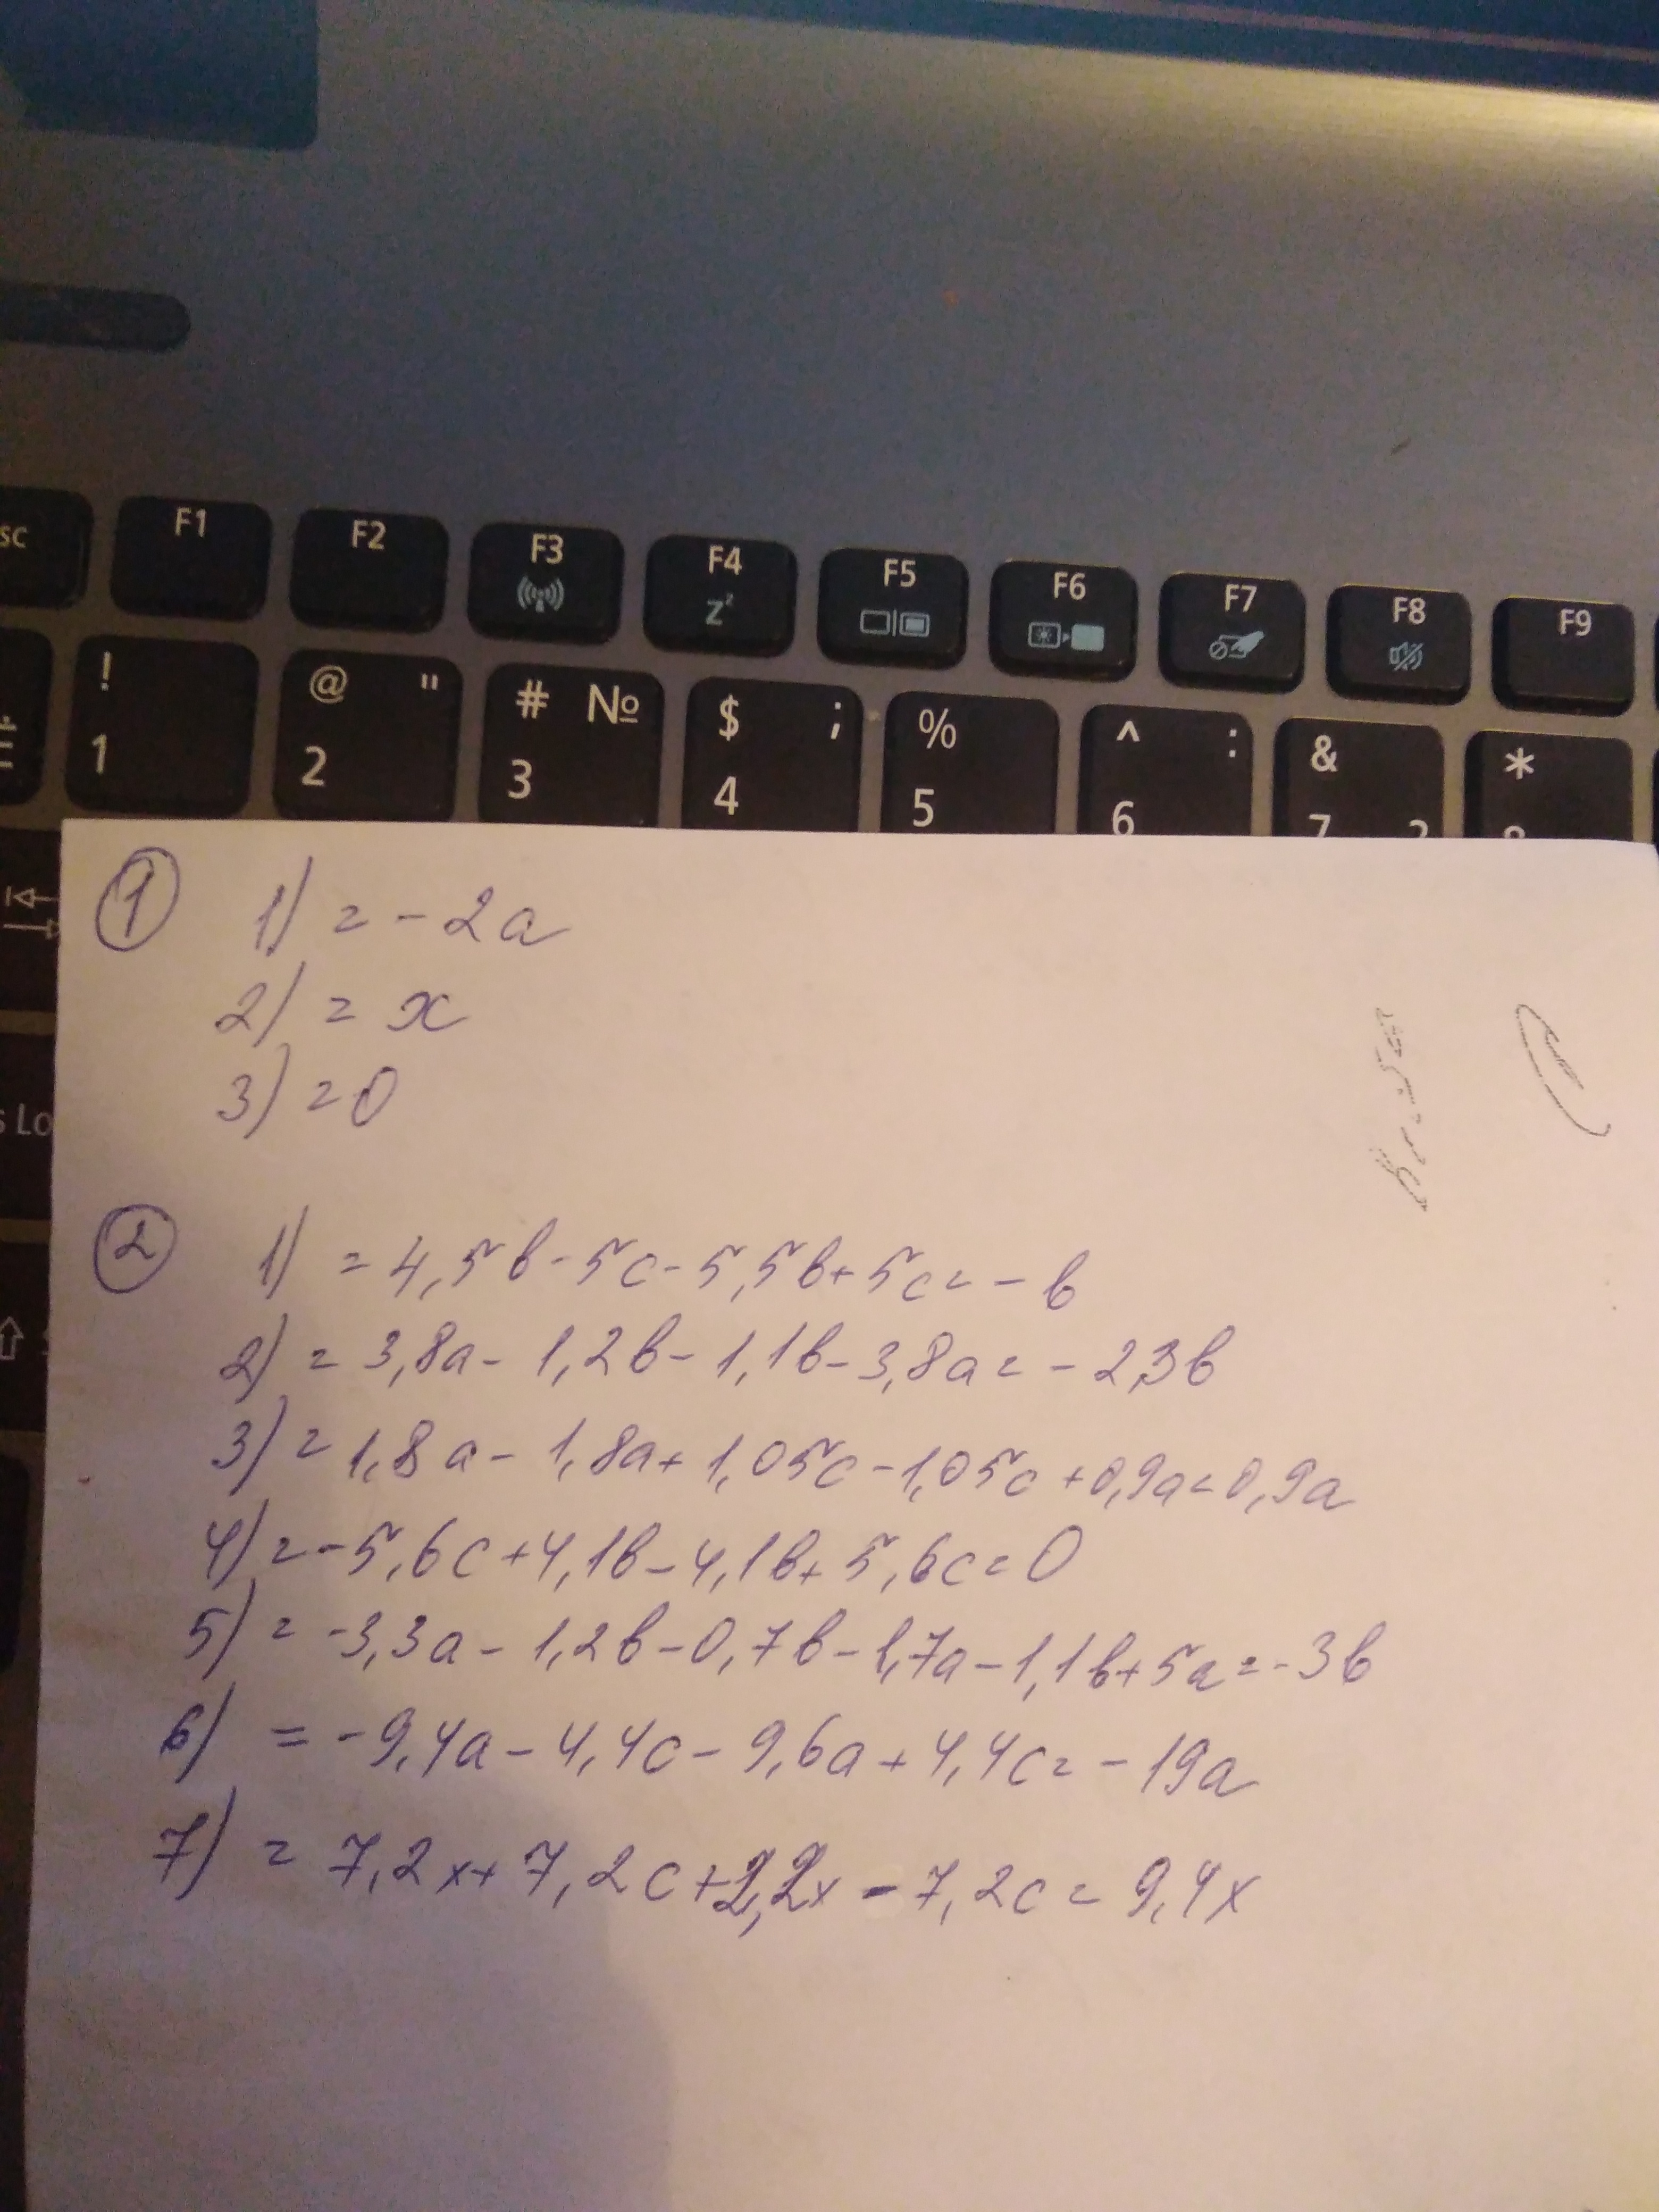 sc F1 F2 F3 F4 Zz F5 F6 F7 F8 F9
! 1 @ " 2 # № 3 $ ; 4 % 5 ^ : 6 & 7 ? * 8
s Lo
① 1) = - 2a
2) = x
3) = 0
② 1) = 4,5b - 5c - 5,5b + 5c = - b
2) = 3,8a - 1,2b - 1,1b - 3,8a = - 2,3b
3) = 1,8a - 1,8a + 1,05c - 1,05c + 0,9a = 0,9a
4) = -5,6c + 4,1b - 4,1b + 5,6c = 0
5) = -3,3a - 1,2b - 0,7b - 1,7a - 1,1b + 5a = - 3b
6) = - 9,4a - 4,4c - 9,6a + 4,4c = - 19a
7) = 7,2x + 7,2c + 2,2x - 7,2c = 9,4x